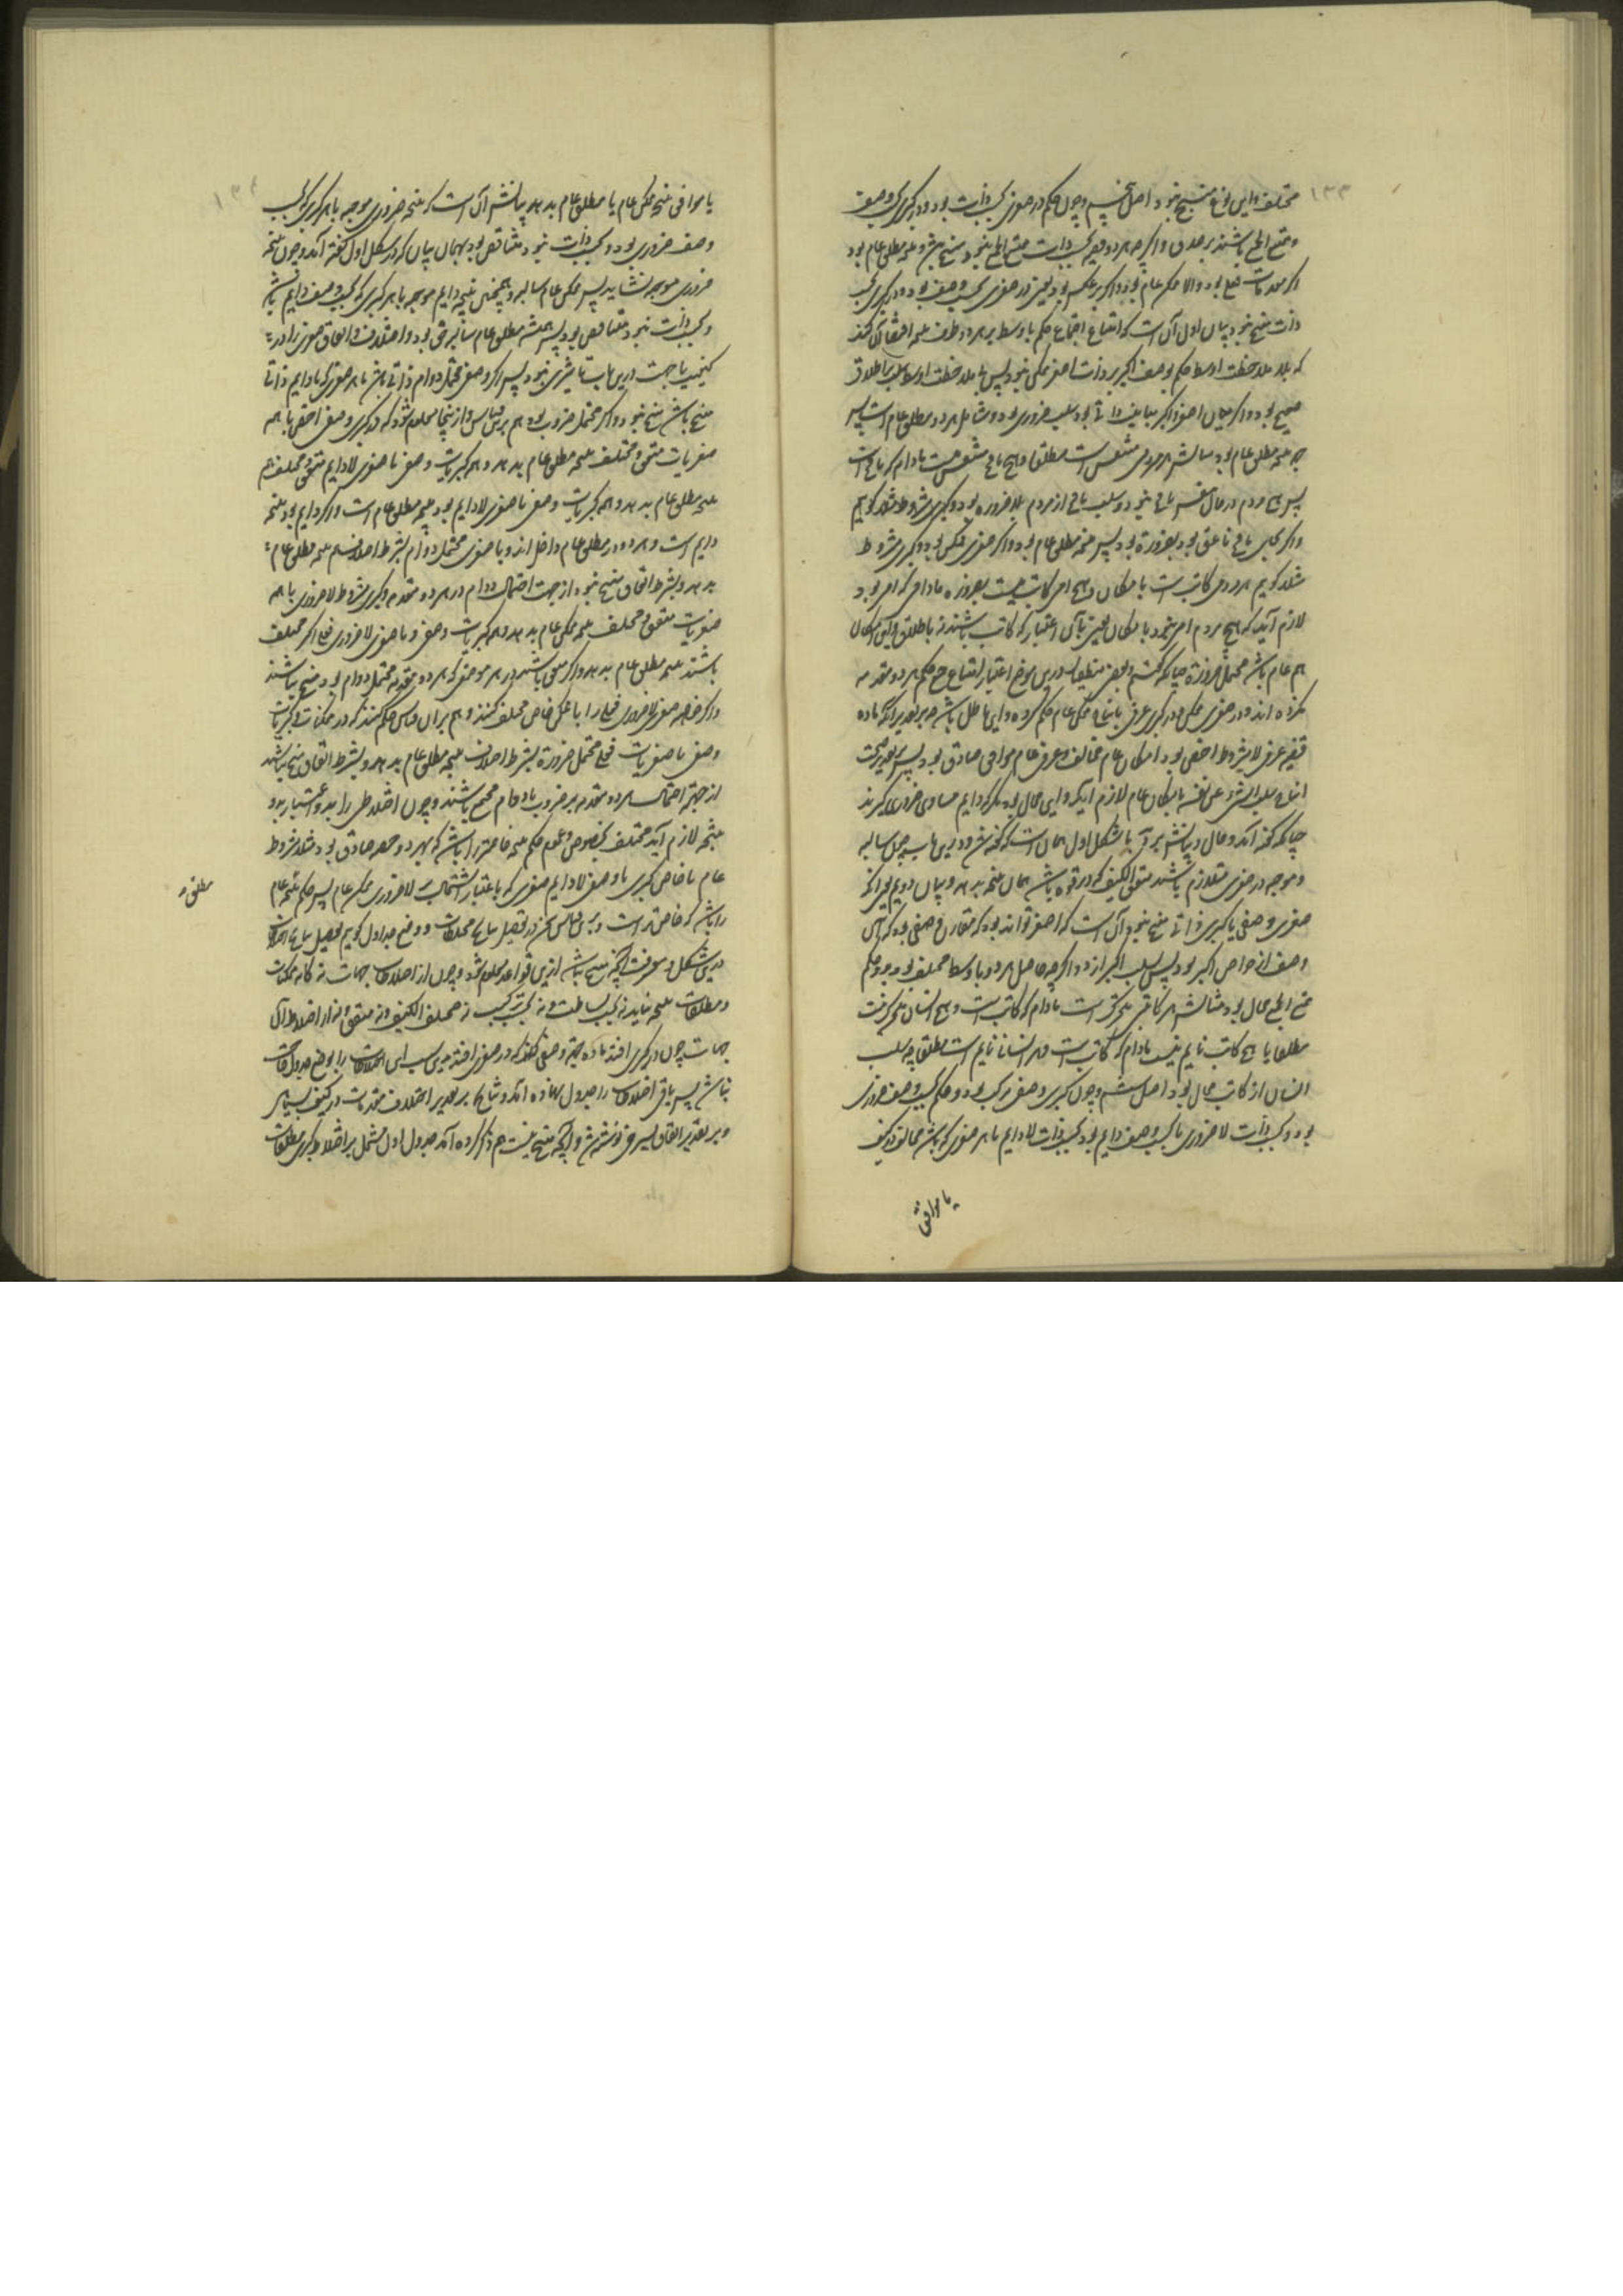 ۱۳۳
مختلف و این نوع منتج نبود اصل پنجم و چون حکم در صغری بحسب ذات بود و در کبری بحسب وصف
و ممتنع الجمع باشند بر صدق و اگر چه هر دو قضیه بحسب ذات ممتنع الجمع نبود منتج باشد و نتیجه مطلق عام بود
اگر مقدمات فعلی بود و الا ممکن عام بود و اگر بر عکس بود یعنی در صغری بحسب وصف بود و در کبری بحسب
ذات منتج نبود بیان اول آن است که امتناع اجتماع حکم باوسط بر هر دو طرف
که بملاحظت اوسط حکم بوصف اکبر بر ذات اصغر ممکن نبود پس با ملاحظت اوسط سلب باطلاق
صحیح بود و اگر میان اصغر و اکبر مباینت ذاتی بود سلب ضروری بود و شامل هر دو مطلق عام است پس
نتیجه مطلق عام بود مثالش هر مردمی متنفس است مطلقا و هیچ مائی متنفس نیست مادام که مائی است
پس هیچ مردم در حال تنفس مائی نبود و سلب مائی از مردم بلا ضرورة بود و کبری مشروط مثلا گوییم
و اگر بجای مائی ناعق بود بضرورة بود پس نتیجه مطلق عام بود و اگر صغری ممکن بود و کبری مشروط
مثلا گوییم هر مردمی کاتب است بامکان و هیچ امی کاتب نیست بضرورة مادام که امی بود
لازم آید که هیچ مردم امی نبود بامکان یعنی بآن اعتبار که کاتب باشند نه باطلاق و این امکان
هم عام باشد محتمل ضرورة چنانکه گفتیم و بعضی منطقیان درین موضع اعتبار امتناع جمع حکم هر دو مقدمه
نکرده اند و در صغری ممکن و در کبری عرفی بانتاج ممکن عام حکم کرده و این باطل باشد چه بر تقدیر آنکه ماده
قضیه عرفی لا مشروط اخص بود امکان عام مخالف و عرفی عام موافق صادق بود پس بتقدیر صحت
انتاج سلب الشیء عن نفسه بامکان عام لازم آید و این محال بود مگر که دایم مساوی ضروری گیرند
چنانکه گفته آمد و حال و بیانش بر با شکل اول همان است که گفته شد و درین باب چون سالبه
و موجبه در صغری متلازم باشند متفق الکیف که در قوه باشد همان نتیجه بدهد و بیان دوم یعنی آنکه
صغری وصفی با کبری ذاتی منتج نبود آن است که اصغر تواند بود که مقارن وصفی بود که آن
وصف از خواص اکبر بود پس سلب اکبر از او و اگر چه حاصل هر دو باوسط مختلف بود و حکم
ممتنع الجمع محال بود مثالش هر کاتبی متحرک است مادام که کاتب است و هیچ انسان متحرک نیست
مطلقا یا هیچ کاتب نایم نیست مادام که کاتب است و هر انسان نایم است مطلقا چه سلب
انسان از کاتب محال بود اصل ششم و چون کبری وصفی مرکب بود و حکم بحسب وصف ضروری
بود و بحسب ذات لا ضروری یا بحسب وصف دایم بود بحسب ذات لا دایم با هر صغری که باشد مخالف در کیف
یا موافق
۱۳۴
یا موافق نتیجه ممکن عام یا مطلق عام بدهد و بیانش آن است که نتیجه ضروری موجبه با هر کبری که بحسب
وصف ضروری بود و بحسب ذات نبود متناقض بود بهمان بیان که در شکل اول گفته آمد و چون نتیجه
ضروری موجبه نشاید پس ممکن عام سالبه بود و همچنین نتیجه دایم موجبه با هر کبری که بحسب وصف دایم باشد
و بحسب ذات نبود متناقض بود پس همیشه مطلق عام سالبه حق بود و اختلاف و اتفاق صغری را در
کیفیت یا جهت درین باب تاثیری نبود پس اگر وصفی محتمل دوام ذاتی باشد با هر صغری که با دایم ذاتی
منتج باشد منتج نبود و اگر محتمل ضرورة بود هم برین قیاس و از اینجا معلوم شود که هر کبری وصفی اخص با همه
صغریات متفق و مختلف نتیجه مطلق عام بدهد و همه کبریات وصفی با صغری لا دایم متفق و مختلف هم
نتیجه مطلق عام بدهد و همه کبریات وصفی با صغری لا دایم بود نتیجه مطلق عام است و اگر دایم بود نتیجه
دایم است و هر دو در مطلق عام داخل اند و با صغری محتمل دوام بشرط اختلاف هم نتیجه مطلق عام
بدهد و بشرط اتفاق منتج نبود از جهت احتمال دوام در هر دو مقدمه و کبری مشروط لا ضروری با همه
صغریات متفق و مختلف نتیجه ممکن عام بدهد و همه کبریات وصفی و با صغری لا ضروری فعلی اگر مختلف
باشند نتیجه مطلق عام بدهد و اگر متفق باشند در هر موضعی که هر دو مقدمه محتمل دوام بود منتج نباشند
و اگر خواهد صغری لا ضروری فعلی را با ممکن خاص مختلف کنند و هم بران قیاس حکم کنند که در ممکنات و کبریات
وصفی با صغریات فعلی محتمل ضرورة بشرط اختلاف نتیجه مطلق عام بدهد و بشرط اتفاق منتج نباشد
از جهة احتمال هر دو مقدمه بر ضرورت یا دوام جمع باشند و چون اختلاطی را بدو اعتبار دو
نتیجه لازم آید مختلف بخصوص و عموم حکم نتیجه خاصتر را باشد که بهر دو وجه صادق بود مثلا مشروط
عام یا خاص کبری با وصفی لا دایم صغری که باعتبار اشتمالش بر لا ضروری ممکن عام پس حکم نتیجه عام
مطلق
را باشد که خاصتر است و برین قیاس کن در تفصیل نتایج مختلطات و وضع جداول گوییم تحصیل نتایج اختلاطات
درین شکل و معرفت آنچه منتج باشد ازین قواعد معلوم شود و چون از اختلاط جهات سه گانه ممکنات
و مطلقات نتیجه نیاید نه بحسب بساطت و نه بحسب ترکیب نه مختلف الکیف و نه متفق و نه از اختلاط آن
جهات چون در کبری افتد با ده جهة وصفی که در صغری افتد بدین سبب این اختلاطات را بوضع جدول حاجت
نباشد پس باقی اختلاطات را جدول نهاده آمد و نتایج بر تقدیر اختلاف مقدمات در کیف بسیاهی
و بر تقدیر اتفاق بسرخی نوشته شد و آنچه منتج نیست هم ذکر کرده آمد جدول اول مشتمل بر اختلاط کبری مطلقات